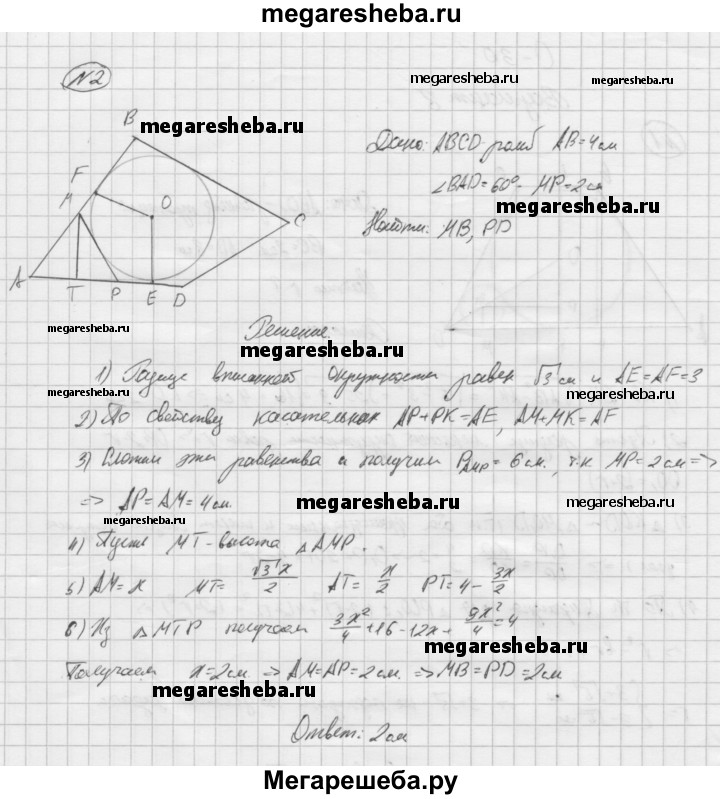 megaresheba.ru
N2
megaresheba.ru
B
megaresheba.ru
Дано: ABCD-ромб AB=4см
F
∠BAD=60° MP=2см
megaresheba.ru
M
O
C
Найти: MB, PD
A
T P E D
megaresheba.ru
megaresheba.ru
Решение:
megaresheba.ru
1) Радиус вписанной окружности равен √3 см и AE=AF=3
megaresheba.ru
megaresheba.ru
2) По свойству касательных AP+PK=AE, AM+MK=AF
3) Сложим эти равенства и получим P_AMP=6см, т.к MP=2см=>
=> AP=AM=4см.
megaresheba.ru
megaresheba.ru
4) Пусть MT-высота △AMP.
5) AM=x MT=√3x/2 AT=x/2 PT=4-3x/2
6) Из △MTP получаем 3x²/4+16-12x+9x²/4=4
megaresheba.ru
Получаем x=2см => AM=AP=2см. => MB=PD=2см
megaresheba.ru
Ответ: 2см
Мегарешеба.ру